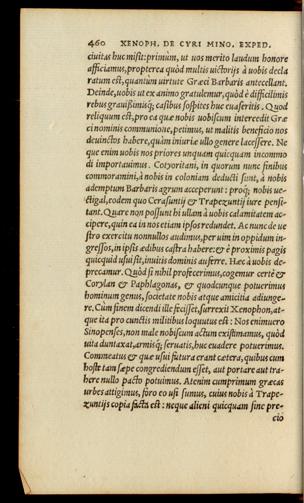 460 XENOPH. DE CYRI MINO. EXPED.
ciuitas huc misit: primùm, ut uos merito laudum honore
afficiamus, propterea quòd multis uictorijs à uobis decla
ratum est, quantum uirtute Græci Barbaris antecellant.
Deinde, uobis ut ex animo gratulemur, quòd è difficilimis
rebus grauißimisq́; casibus sospites huc euaseritis. Quod
reliquum est, pro ea quæ nobis uobiscum intercedit Græ
ci nominis communione, petimus, ut malitis beneficio nos
deuinctos habere, quàm iniuriæ ullo genere lacessere. Ne
que enim uobis nos priores unquam quicquam incommo
di importauimus. Cotyoritani, in quorum nunc finibus
commoramini, à nobis in coloniam deducti sunt, à nobis
ademptum Barbaris agrum acceperunt: proq́; nobis ue-
ctigal, eodem quo Cerasuntij & Trapezuntij iure pensi
tant. Quare non possunt hi ullam à uobis calamitatem ac-
cipere, quin ea in nos etiam ipsos redundet. Ac nunc de ue
stro exercitu nonnullos audimus, per uim in oppidum in-
gressos, in ipsis ædibus castra habere: & è proximis pagis
quicquid usui sit, inuitis dominis auferre. Hæc à uobis de-
precamur. Quòd si nihil profecerimus, cogemur certè &
Corylan & Paphlagonas, & quodcunque potuerimus
hominum genus, societate nobis atque amicitia adiunge-
re. Cùm finem dicendi ille fecisset, surrexit Xenophon, at-
que ita pro cunctis militibus loquutus est: Nos enimuero
Sinopenses, non malè nobiscum actum existimamus, quòd
uita duntaxat, armisq́; seruatis, huc euadere potuerimus.
Commeatus & quæ usui futura erant cætera, quibus cum
hoste tam sæpe congrediendum esset, aut portare aut tra-
here nullo pacto potuimus. Atenim cumprimum græcas
urbes attigimus, foro eo usi sumus, cuius nobis à Trape-
zuntijs copia facta est: neque alieni quicquam sine pre-
cio